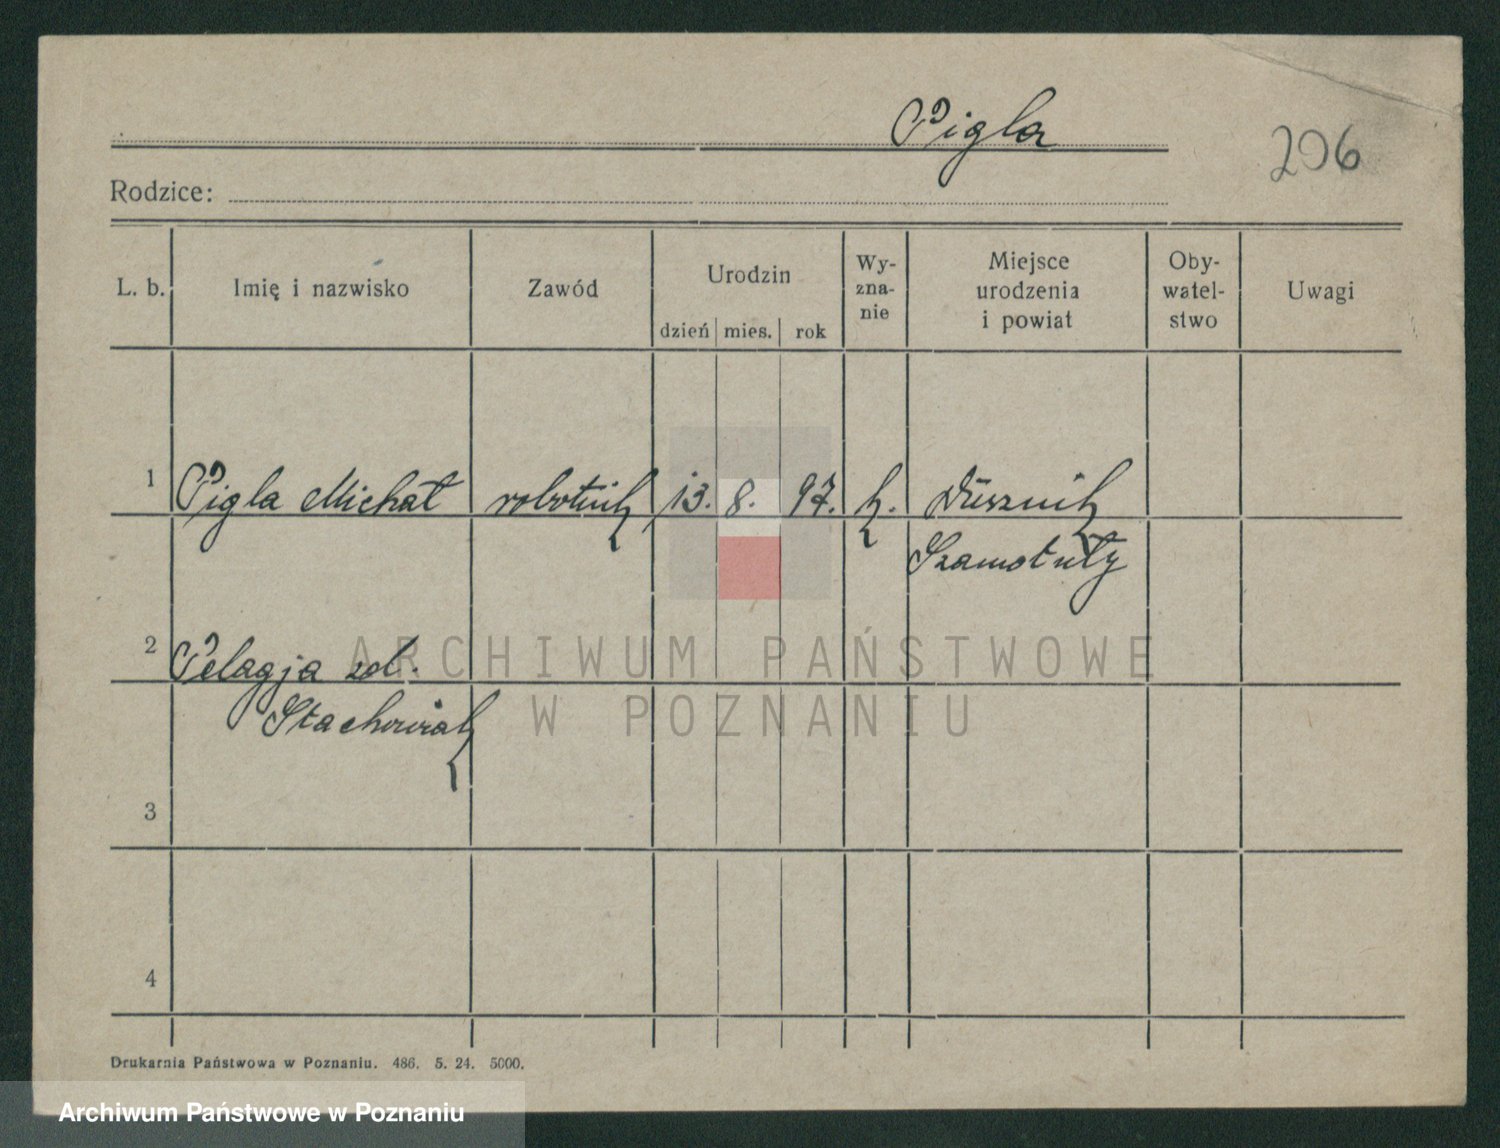 Pigla
206
Rodzice:
L. b.
Imię i nazwisko
Zawód
Urodzin
dzień
mies.
rok
Wy-
zna-
nie
Miejsce
urodzenia
i powiat
Oby-
watel-
stwo
Uwagi
1 Pigla Michał robotnik 13. 8. 97. k. Dusznik
Szamotuły
2 Pelagja zd.
Stachowiak
3
4
ARCHIWUM PAŃSTWOWE
W POZNANIU
Drukarnia Państwowa w Poznaniu. 486. 5. 24. 5000.
Archiwum Państwowe w Poznaniu